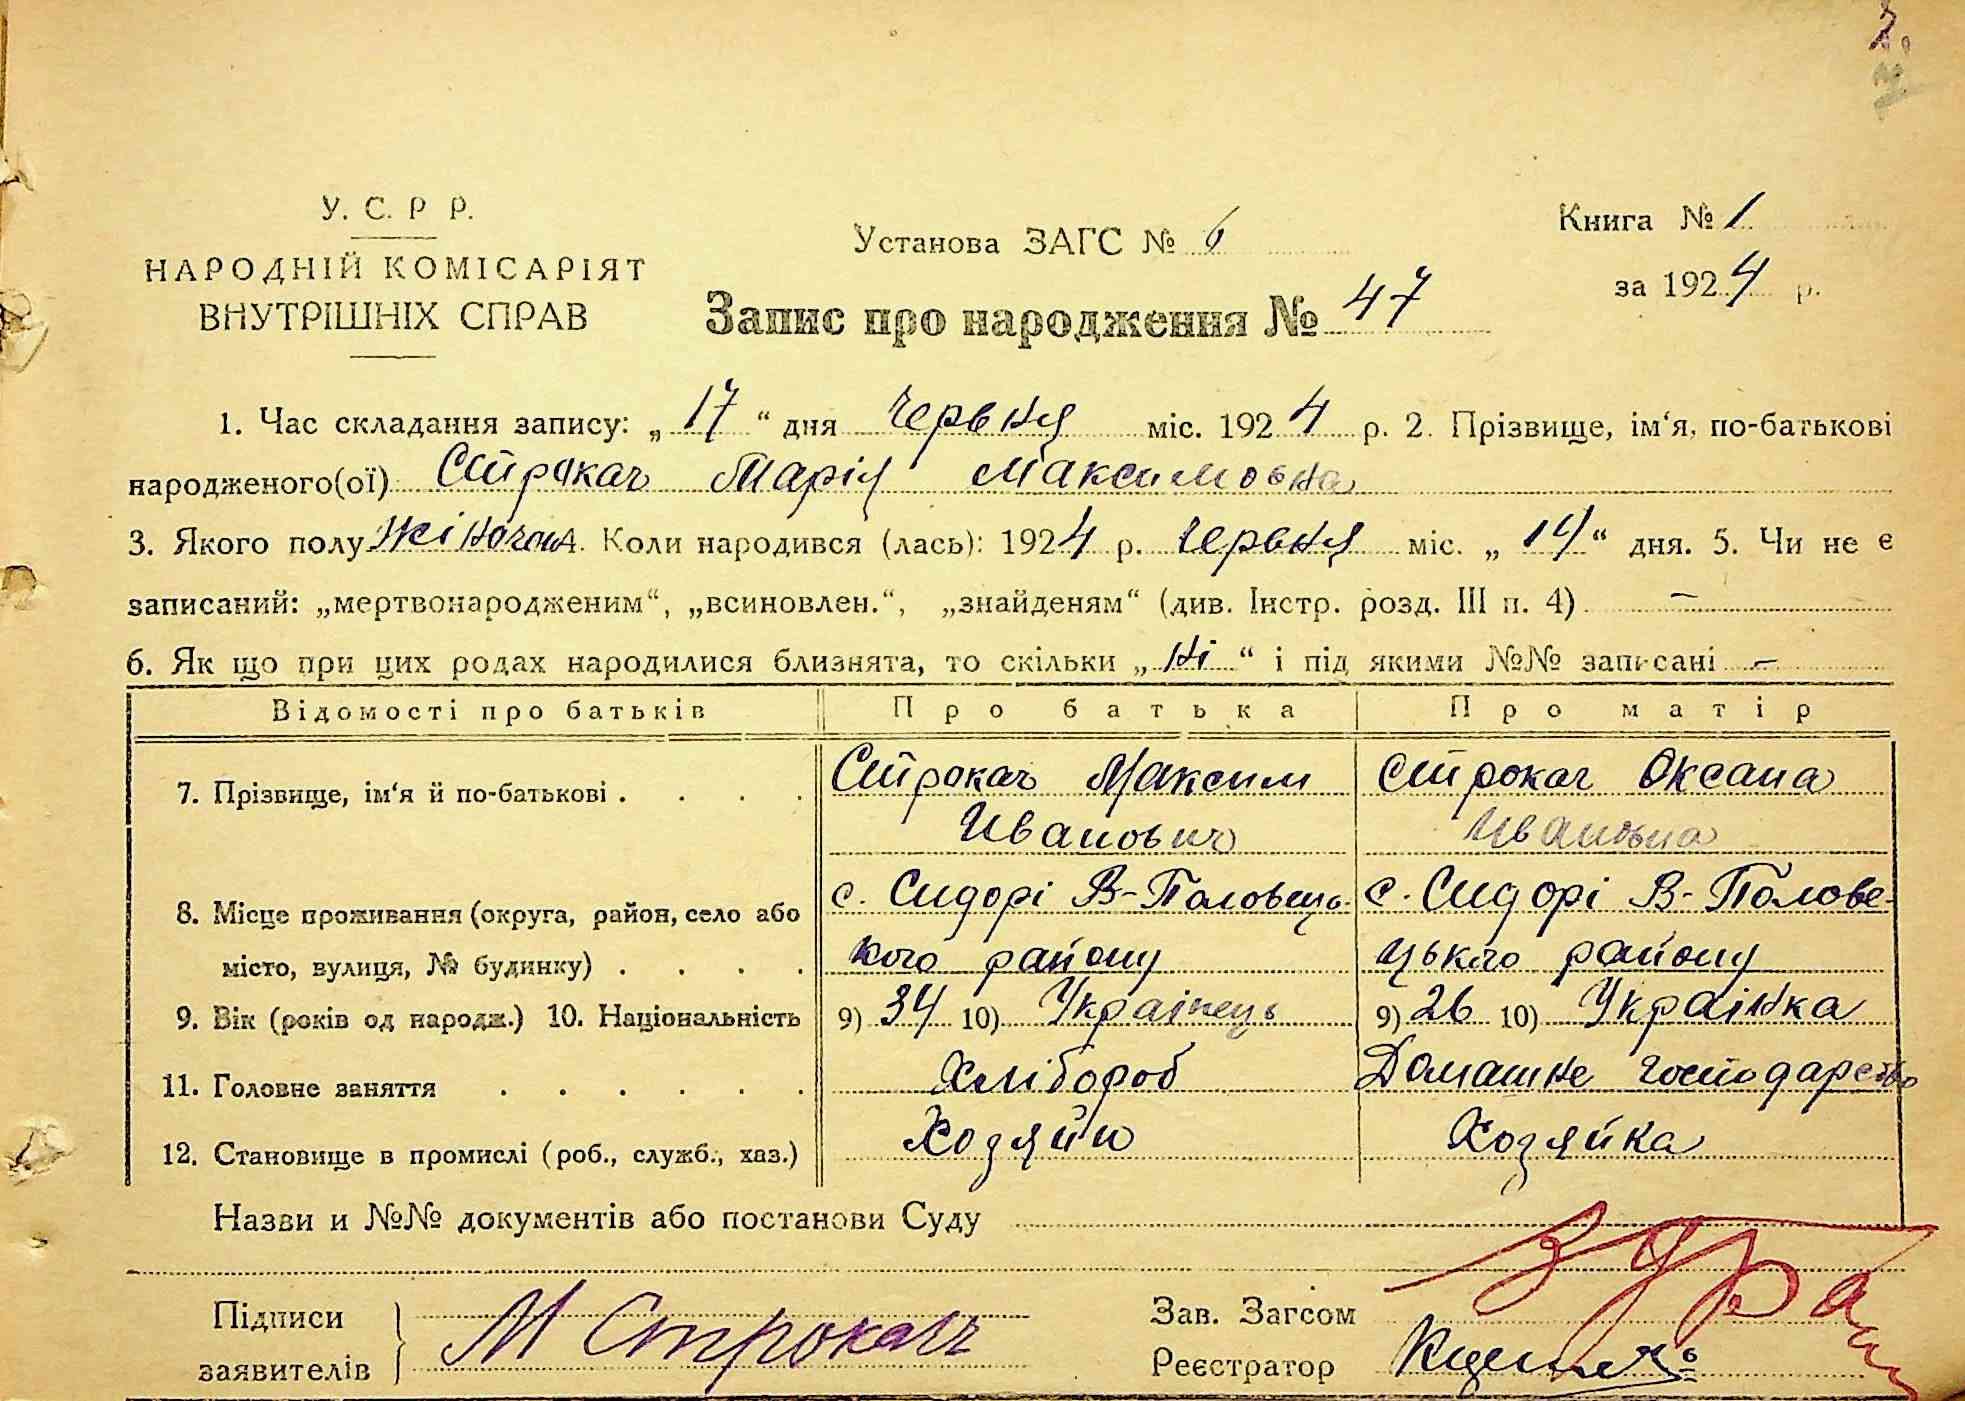 У. С. Р Р.
НАРОДНІЙ КОМІСАРІЯТ
ВНУТРІШНІХ СПРАВ
Установа ЗАГС № 6
Книга № 1
за 1924 р.
Запис про народження № 47
1. Час складання запису: „17“ дня Червня міс. 1924 р. 2. Прізвище, ім‘я, по-батькові
народженого(ої) Строкач Марія Максимовна
3. Якого полу Жіночоі 4. Коли народився (лась): 1924 р. Червня міс. „14“ дня. 5. Чи не є
записаний: „мертвонародженим“, „всиновлен.“, „знайденям“ (див. Інстр. розд. III п. 4) —
6. Як що при цих родах народилися близнята, то скільки „Ні“ і під якими №№ записані –
Відомості про батьків Про батька Про матір
7. Прізвище, ім‘я й по-батькові . . . . Строкач Максим Строкач Оксана
Иванович Ивановна
8. Місце проживання (округа, район, село або с. Сидорі В-Половець- с. Сидорі В-Полове-
місто, вулиця, № будинку) . . . . кого району цького району
9. Вік (років од народж.) 10. Національність 9) 34 10) Українець 9) 26 10) Українка
11. Головне заняття . . . . . . Хлібороб Домашнє господарство
12. Становище в промислі (роб., служб., хаз.) Хозяйн Хозяйка
Назви и №№ документів або постанови Суду
Підписи
заявителів
М Строкач
Зав. Загсом
Реєстратор